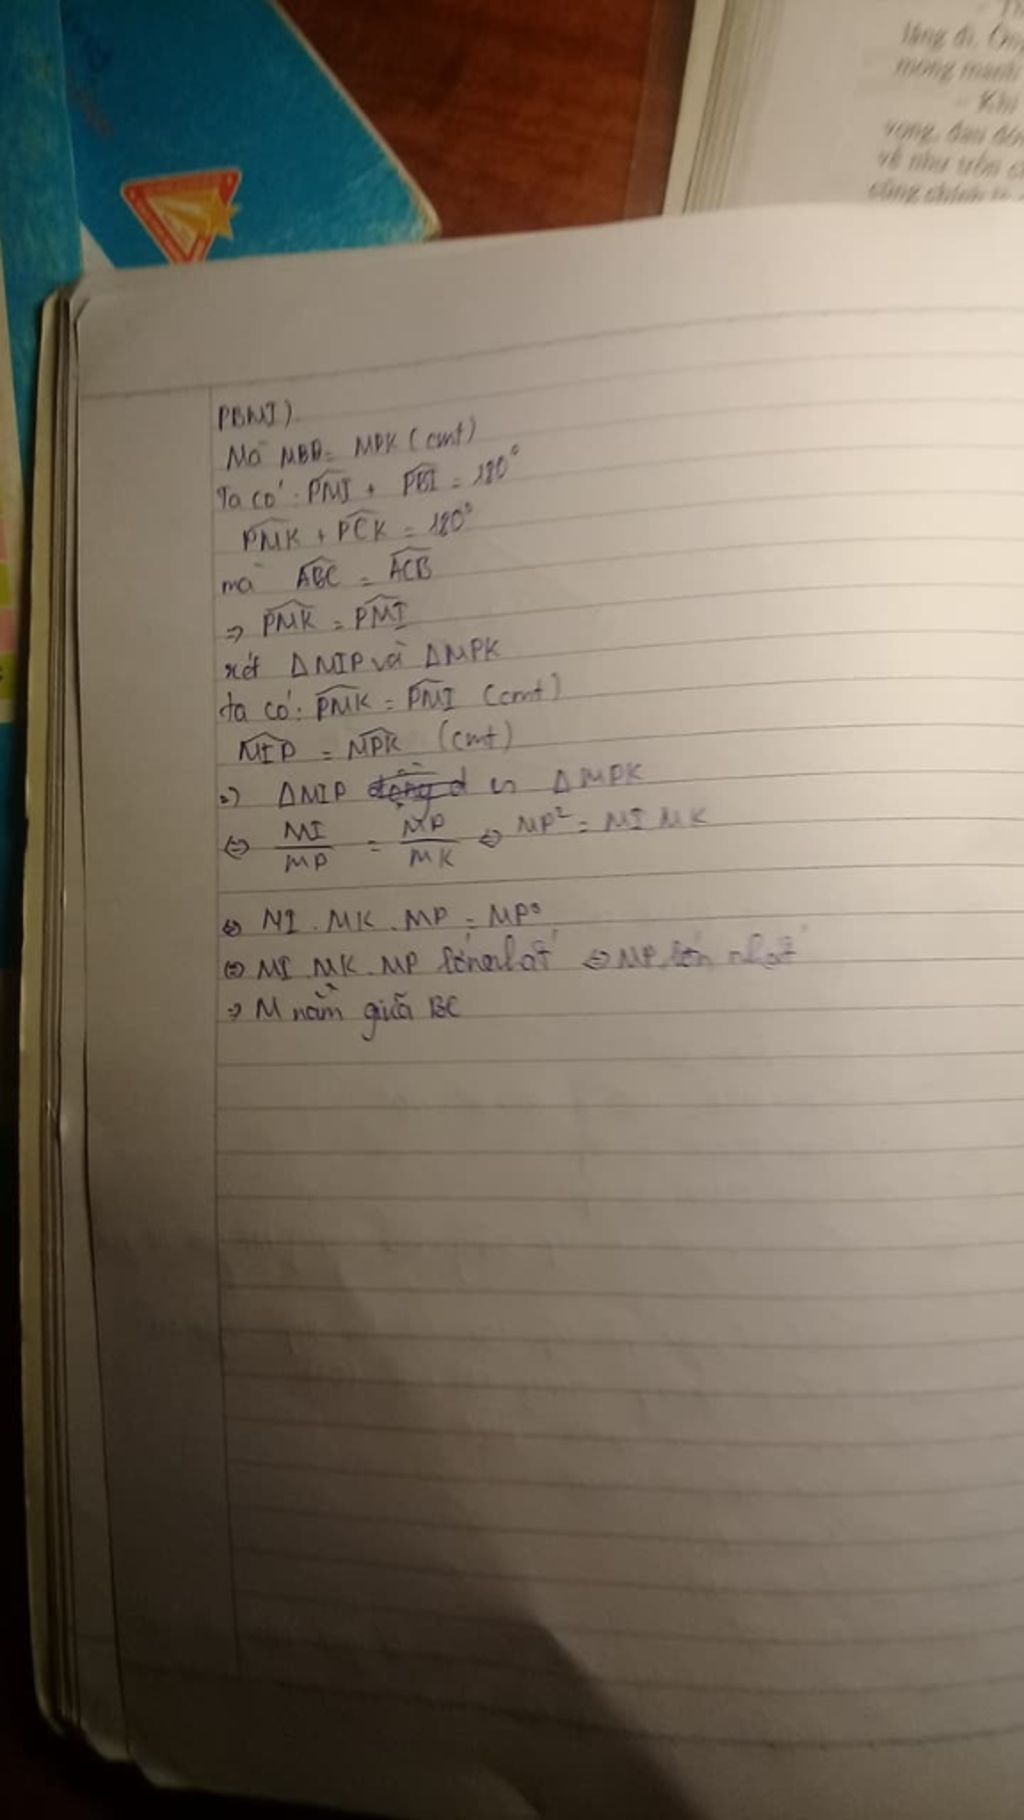 lặng đi. Ông
mỏng manh
- Khi
vọng, đau đớn
về như
cũng chính là
PBMI).
Mà MBP = MPK (cmt)
Ta có: PMI + PBI = 180°
PMK + PCK = 180°
mà ABC = ACB
=> PMK = PMI
xét Δ MIP và Δ MPK
ta có: PMK = PMI (cmt)
MIP = MPK (cmt)
=> Δ MIP ∽ Δ MPK
<=> MI/MP = MP/MK <=> MP² = MI.MK
<=> MI . MK . MP = MP³
<=> MI . MK . MP lớn nhất <=> MP lớn nhất
=> M nằm giữa BC